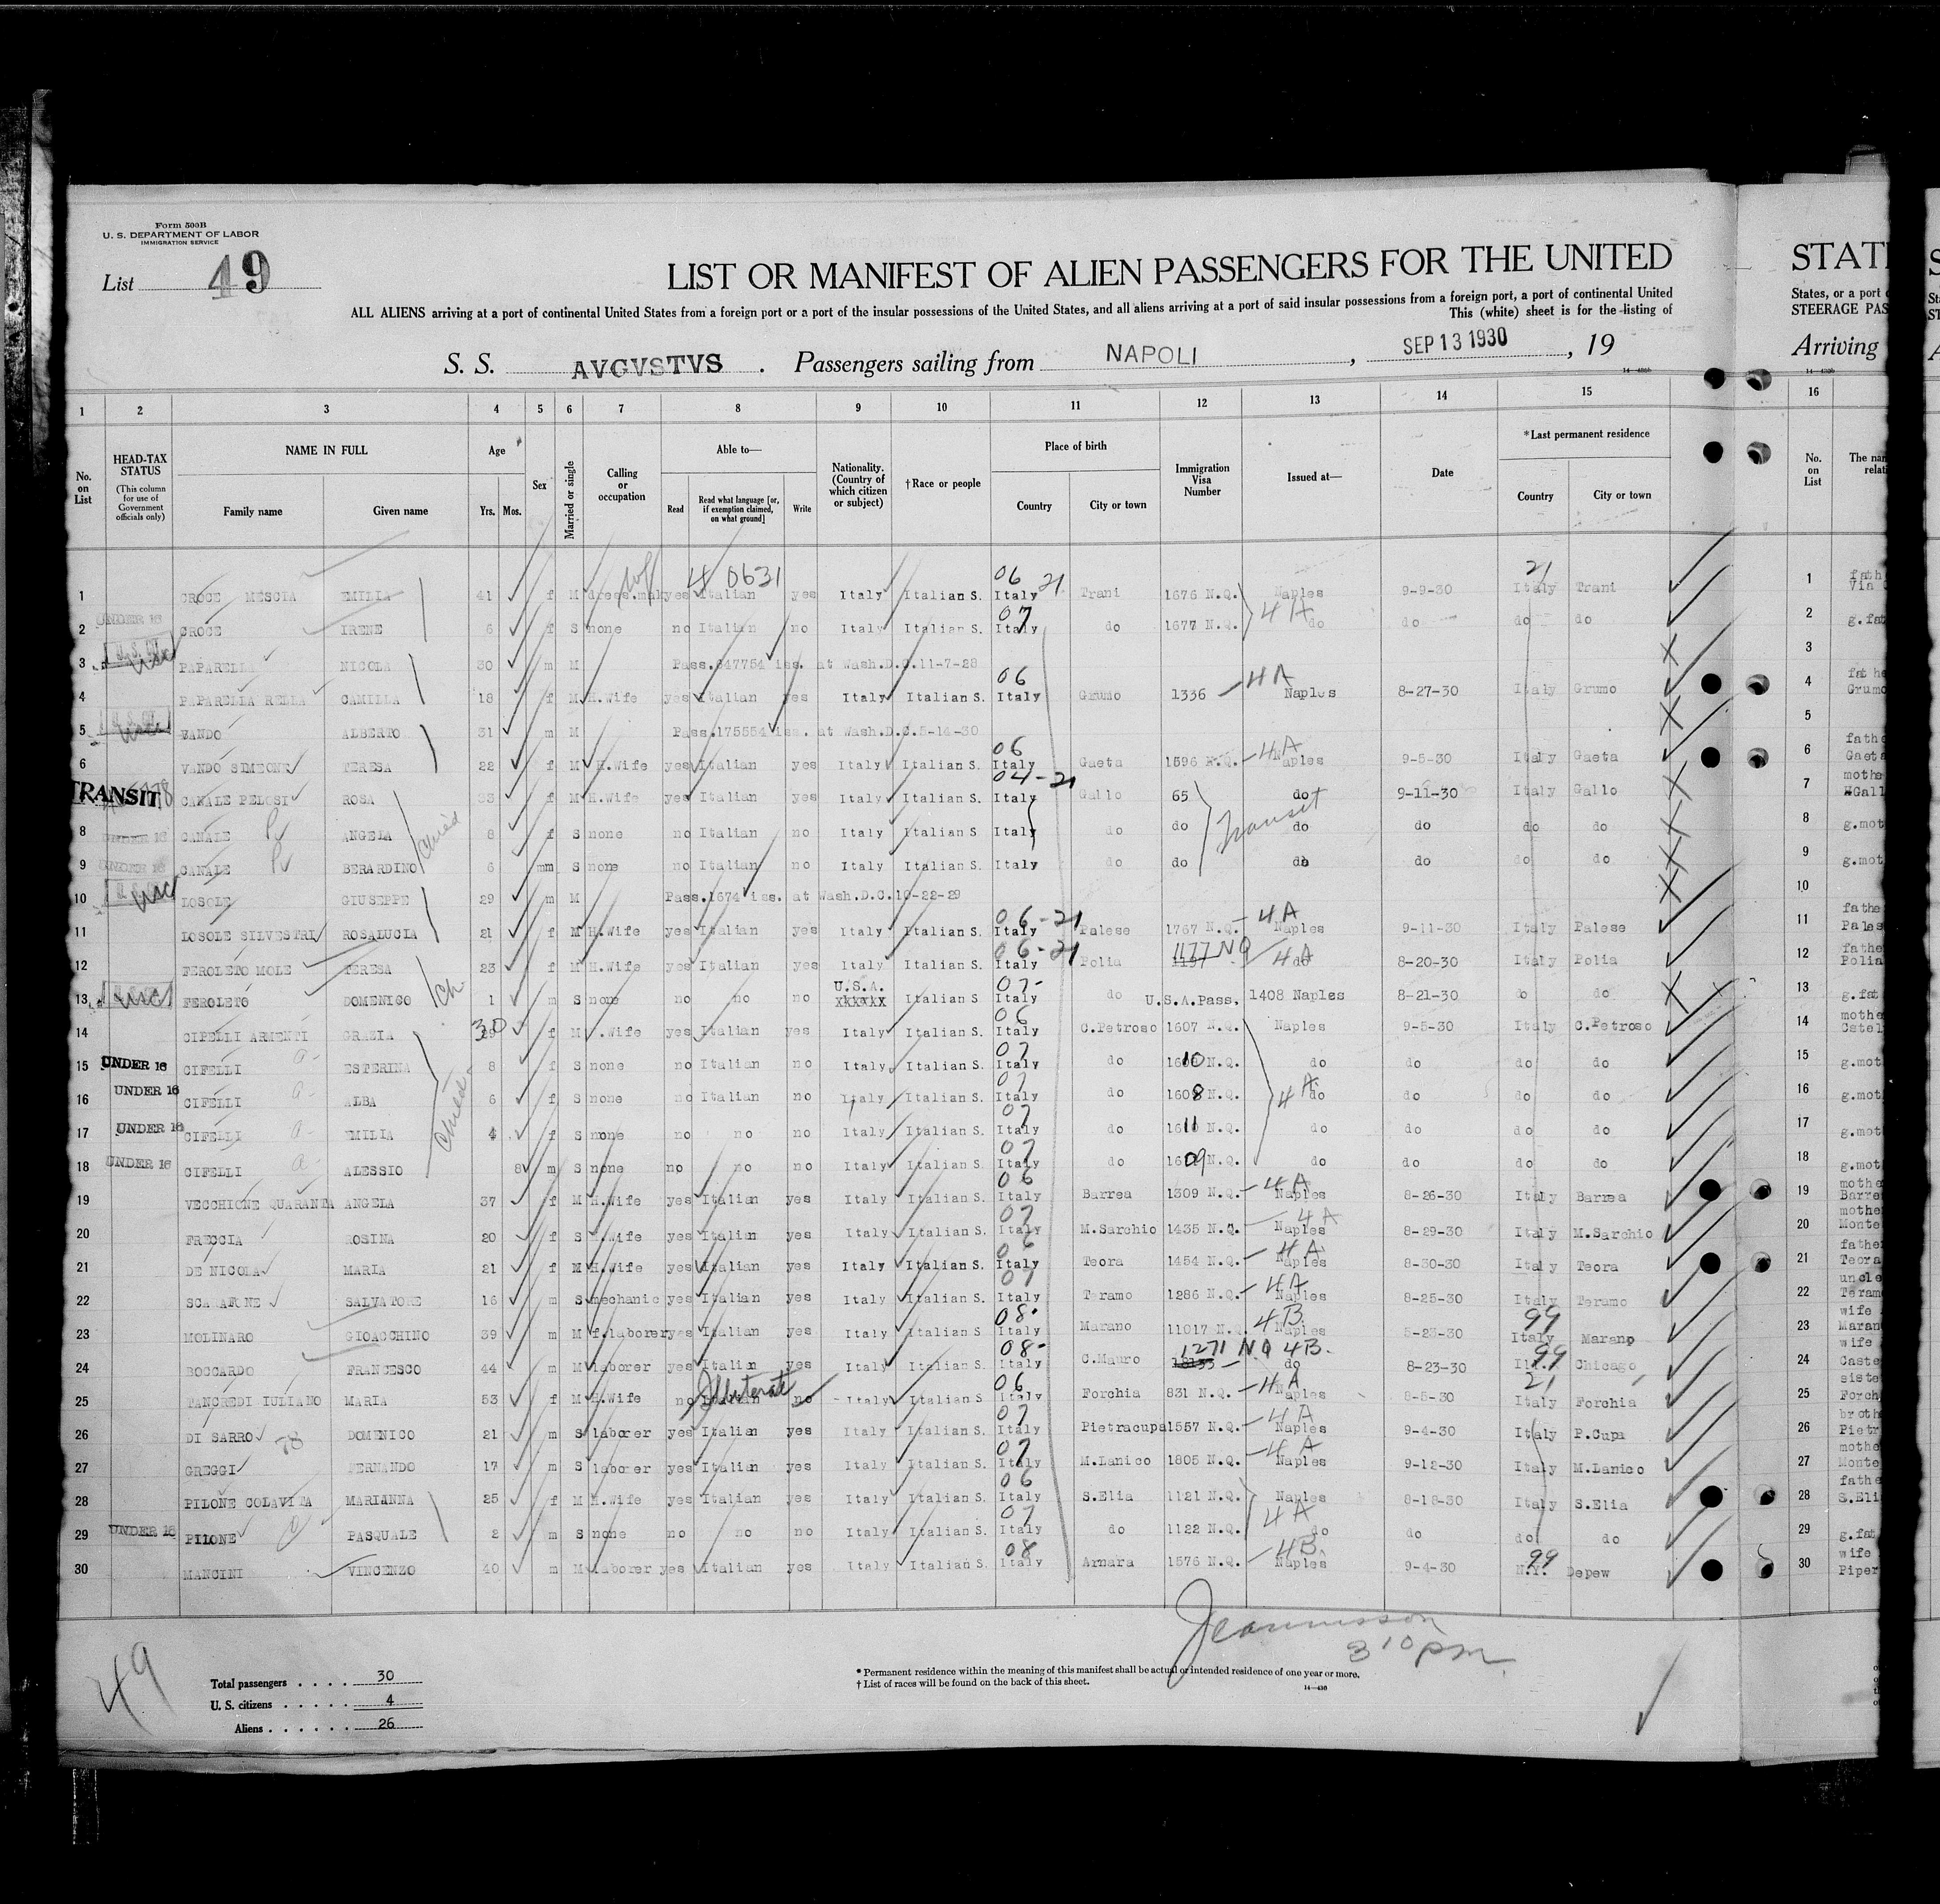 Form 500B
U. S. DEPARTMENT OF LABOR
IMMIGRATION SERVICE
List 49
LIST OR MANIFEST OF ALIEN PASSENGERS FOR THE UNITED
STAT
ALL ALIENS arriving at a port of continental United States from a foreign port or a port of the insular possessions of the United States, and all aliens arriving at a port of said insular possessions from a foreign port, a port of continental United
States, or a port
This (white) sheet is for the listing of
STEERAGE PAS
S. S. AVGVSTVS . Passengers sailing from NAPOLI , SEP 13 1930 , 19
Arriving
1 2 3 4 5 6 7 8 9 10 11 12 13 14 15 16
No. on List
HEAD-TAX STATUS
(This column for use of Government officials only)
NAME IN FULL
Family name Given name
Age
Yrs. Mos.
Sex
Married or single
Calling or occupation
Able to—
Read
Read what language [or, if exemption claimed, on what ground]
Write
Nationality. (Country of which citizen or subject)
†Race or people
Place of birth
Country City or town
Immigration Visa Number
Issued at—
Date
*Last permanent residence
Country City or town
No. on List
4 0631
1 CROCE MESCIA EMILIA 41 f M dress.mak yes Italian yes Italy Italian S. 06 21 Italy Trani 1676 N.Q. Naples 9-9-30 21 Italy Trani 1 fath Via
2 UNDER 16 CROCE IRENE 6 f S none no Italian no Italy Italian S. 07 Italy do 1677 N.Q. 4A do do do do 2 g.fat
3 USC PAPARELLA NICOLA 30 m M Pass.547754 iss. at Wash.D.C.11-7-28 3
4 PAPARELLA RELLA CAMILLA 18 f M H.Wife yes Italian yes Italy Italian S. 06 Italy Grumo 1336 4A Naples 8-27-30 Italy Grumo 4 fathe Grumo
5 USC VANDO ALBERTO 31 m M Pass.175554 iss. at Wash.D.C.5-14-30 5
6 VANDO SIMEONE TERESA 22 f M H.Wife yes Italian yes Italy Italian S. 06 Italy Gaeta 1596 N.Q. 4A Naples 9-5-30 Italy Gaeta 6 fathe Gaeta
7 TRANSIT CANALE PELOSI ROSA 33 f M H.Wife yes Italian yes Italy Italian S. 04-21 Italy Gallo 65 do 9-11-30 Italy Gallo 7 mothe Gall
8 UNDER 16 CANALE ANGELA 8 f S none no Italian no Italy Italian S. Italy do do Transit do do do do 8 g.mot
9 UNDER 16 CANALE BERARDINO 6 mm S none no Italian no Italy Italian S. Italy do do do do do do 9 g.mot
10 USC LOSOLE GIUSEPPE 29 m M Pass.1674 iss. at Wash.D.C.10-22-29 10
11 LOSOLE SILVESTRI ROSALUCIA 21 f M H.Wife yes Italian yes Italy Italian S. 06-21 Italy Palese 1767 N.Q. 4A Naples 9-11-30 Italy Palese 11 fathe Pales
12 FEROLETO MOLE TERESA 23 f M H.Wife yes Italian yes Italy Italian S. 06-21 Italy Polia 1177 NQ 4A do 8-20-30 Italy Polia 12 fathe Polia
13 USC FEROLETO DOMENICO Ch 1 m S none no no no U.S.A. xxxxxx Italian S. 07- Italy do U.S.A.Pass. 1408 Naples 8-21-30 do do 13 g.fat
14 CIFELLI ARMENTI GRAZIA 30 f M H.Wife yes Italian yes Italy Italian S. 06 Italy C.Petroso 1607 N.Q. Naples 9-5-30 Italy C.Petroso 14 mothe Castel
15 UNDER 16 CIFELLI ESTERINA 8 f S none no Italian no Italy Italian S. 07 Italy do 1610 N.Q. do do do do 15 g.mot
16 UNDER 16 CIFELLI ALBA 6 f S none no Italian no Italy Italian S. 07 Italy do 1608 N.Q. 4A do do do do 16 g.mot
17 UNDER 16 CIFELLI EMILIA 4 f S none no no no Italy Italian S. 07 Italy do 1611 N.Q. do do do do 17 g.mot
18 UNDER 16 CIFELLI ALESSIO 8 m S none no no no Italy Italian S. 07 Italy do 1609 N.Q. do do do do 18 g.mot
19 VECCHIONE QUARANTA ANGELA 37 f M H.Wife yes Italian yes Italy Italian S. 06 Italy Barrea 1309 N.Q. 4A Naples 8-26-30 Italy Barrea 19 mothe Barre
20 FRECCIA ROSINA 20 f S H.Wife yes Italian yes Italy Italian S. 07 Italy M.Sarchio 1435 N.Q. 4A Naples 8-29-30 Italy M.Sarchio 20 mothe Monte
21 DE NICOLA MARIA 21 f M H.Wife yes Italian yes Italy Italian S. 06 Italy Teora 1454 N.Q. 4A Naples 8-30-30 Italy Teora 21 father Teora
22 SCARAFONE SALVATORE 16 m S mechanic yes Italian yes Italy Italian S. 07 Italy Teramo 1286 N.Q. 4A Naples 8-25-30 Italy Teramo 22 uncle Teram
23 MOLINARO GIOACCHINO 39 m M f.laborer yes Italian yes Italy Italian S. 08 Italy Marano 11017 N. 4B Naples 5-23-30 99 Italy Marano 23 wife Maran
24 BOCCARDO FRANCESCO 44 m M laborer yes Italin yes Italy Italian S. 08- Italy C.Mauro 1271 NQ 4B do 8-23-30 99 Ill. Chicago 24 wife Caste
25 TANCREDI IULIANO MARIA 53 f M H.Wife no Illiterate no Italy Italian S. 06 Italy Forchia 831 N.Q. 4A Naples 8-5-30 21 Italy Forchia 25 siste Forch
26 DI SARRO 78 DOMENICO 21 m S laborer yes Italian yes Italy Italian S. 07 Italy Pietracupa 1557 N.Q. 4A Naples 9-4-30 Italy P.Cupa 26 broth Pietr
27 GREGGI FERNANDO 17 m S laborer yes Italian yes Italy Italian S. 07 Italy M.Lanico 1805 N.Q. 4A Naples 9-12-30 Italy M.Lanico 27 mothe Monte
28 PILONE COLAVITA MARIANNA 25 f M H.Wife yes Italian yes Italy Italian S. 06 Italy S.Elia 1121 N.Q. Naples 8-18-30 Italy S.Elia 28 fathe S.Eli
29 UNDER 16 PILONE PASQUALE 2 m S none no no no Italy Italian S. 07 Italy do 1122 N.Q. 4A do do do do 29 g.fat
30 MANCINI VINCENZO 40 m M laborer yes Italian yes Italy Italian S. 08 Italy Arnara 1576 N.Q. 4B Naples 9-4-30 99 N.Y. Depew 30 wife Piper
3 10 pm
49
Total passengers . . . . 30
U. S. citizens . . . . . 4
Aliens . . . . . . 26
* Permanent residence within the meaning of this manifest shall be actual or intended residence of one year or more.
† List of races will be found on the back of this sheet.